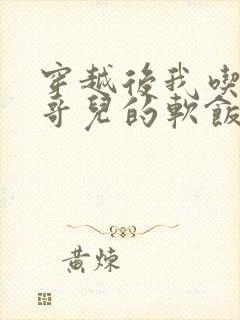 穿越後我喫
哥兒的軟飯
黃煉